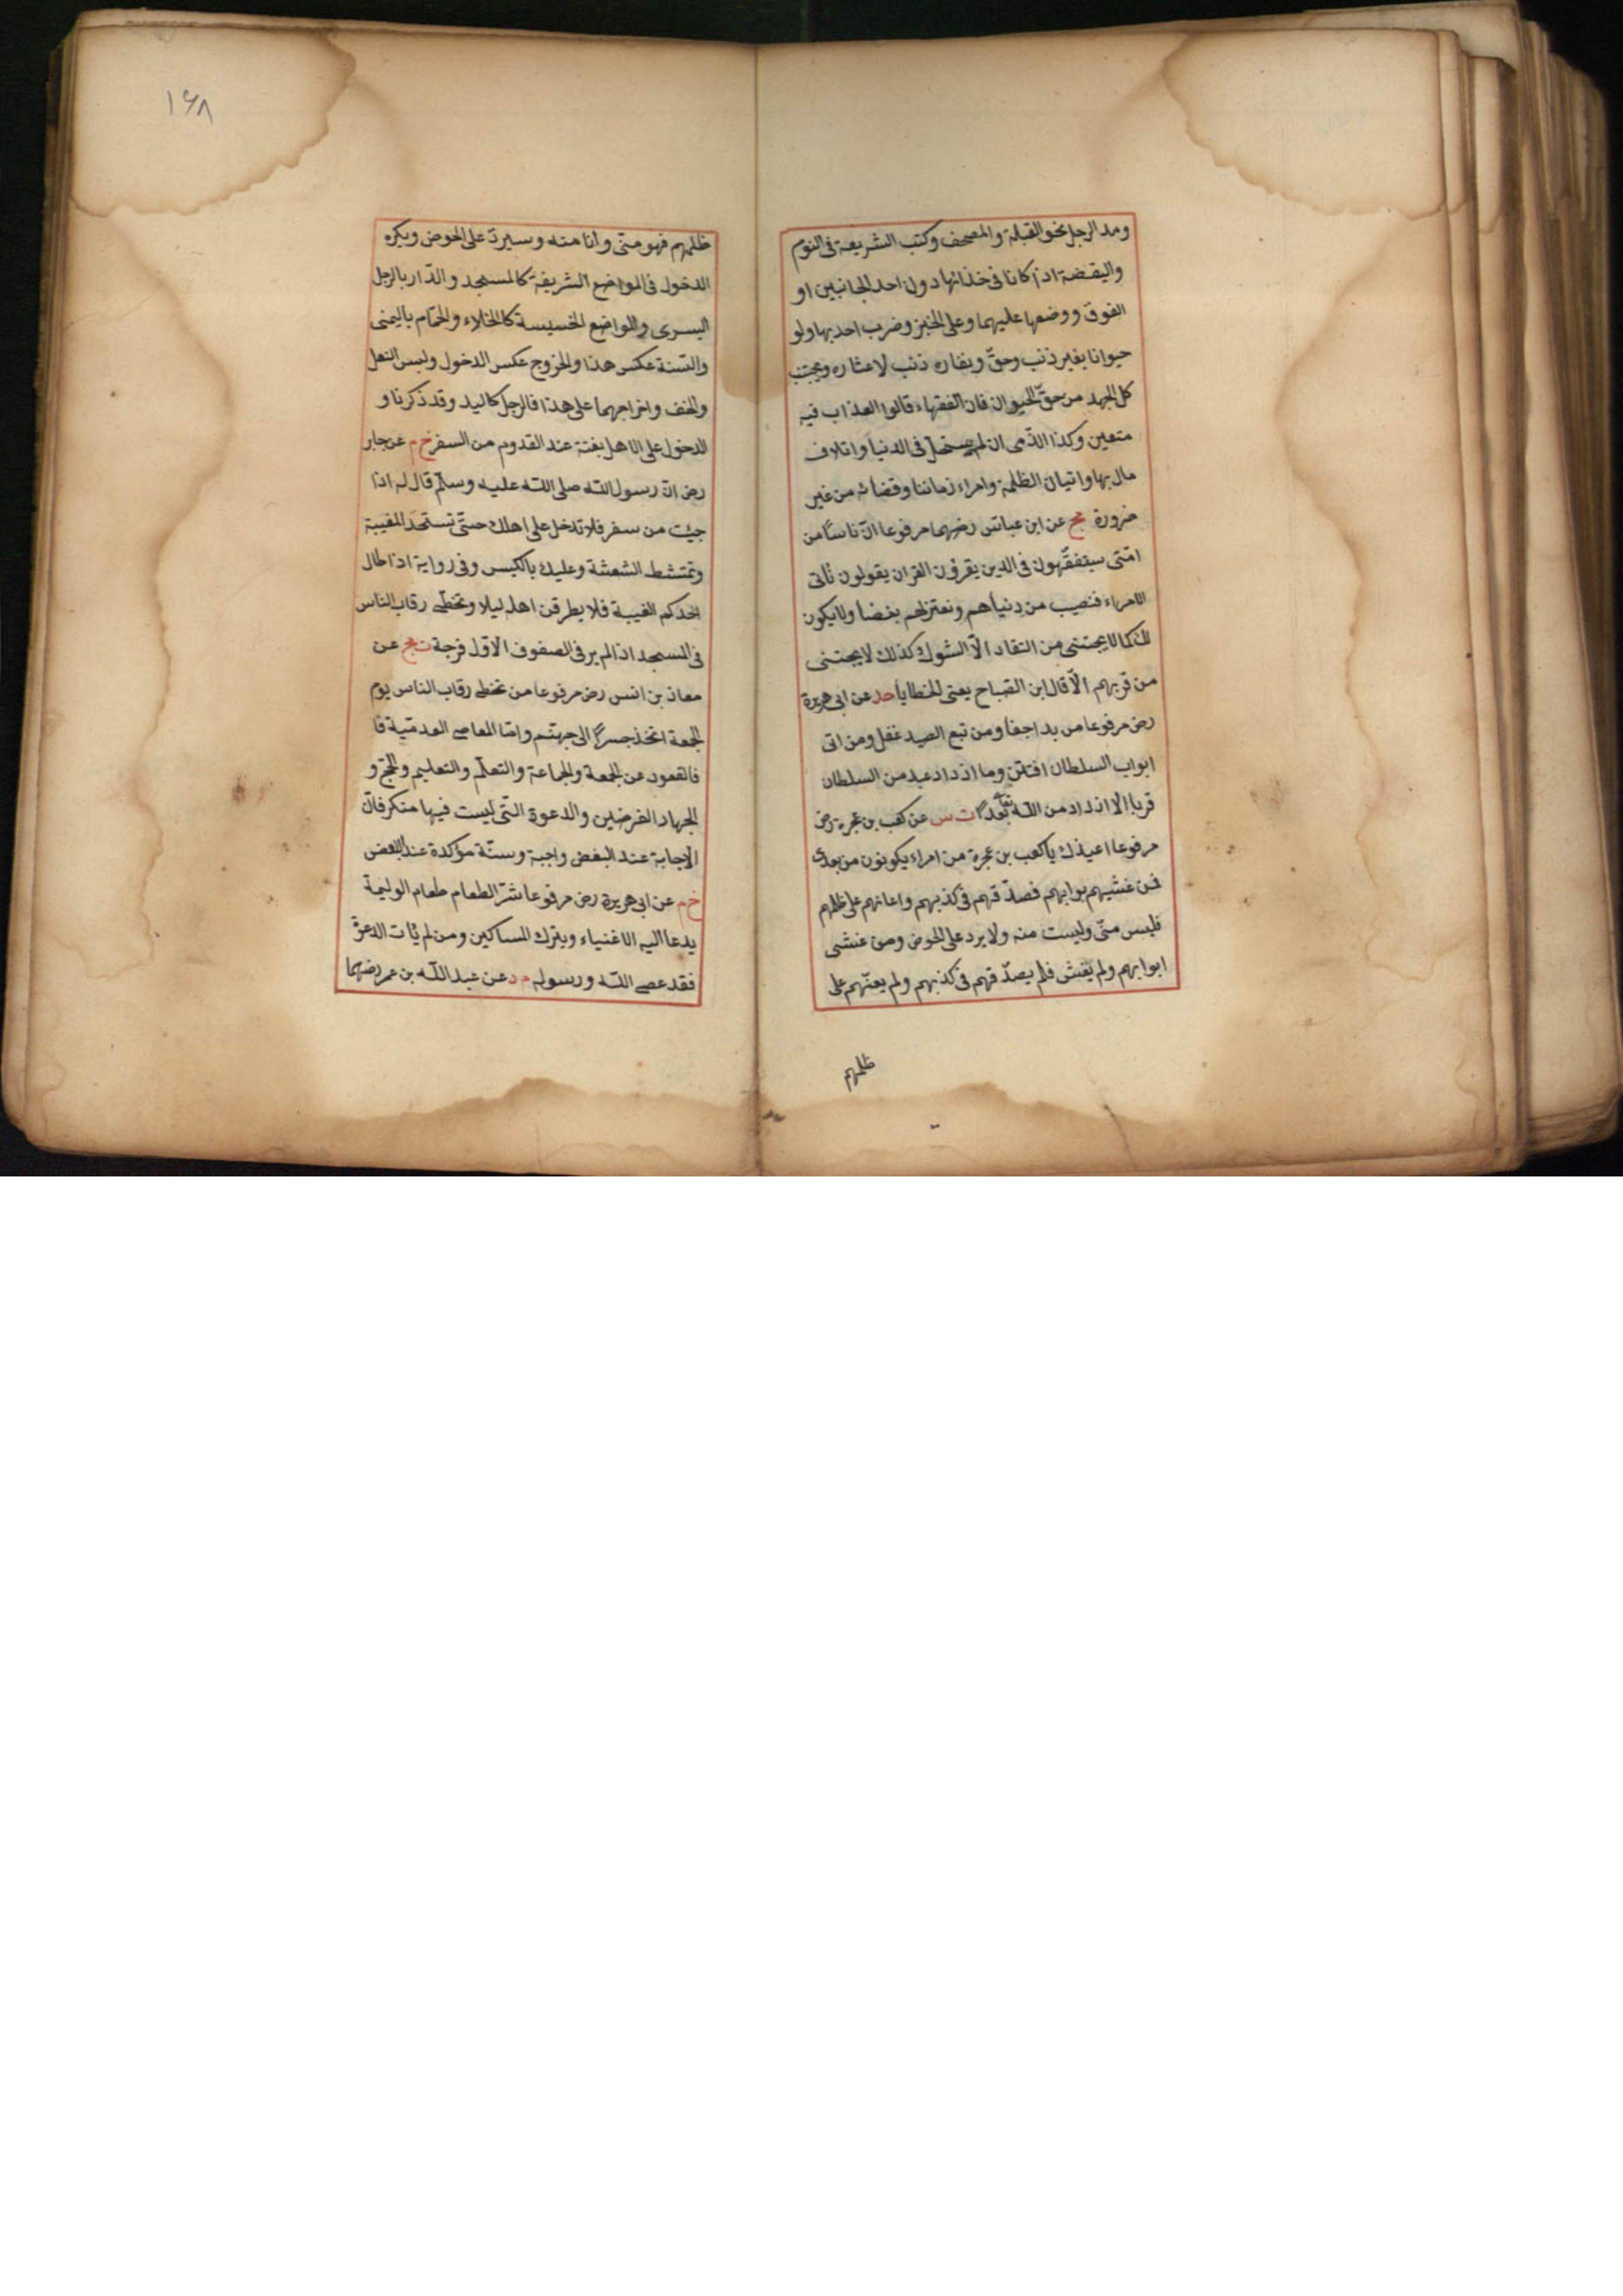 ومد الرجل نحو القبلة والمصحف وكتب الشريعة فى النوم
واليقضة اذا كانا فى حذائها دون احد الجانبين او
الفوق ووضعها عليهما وعلى الخبز وضرب احد بها ولو
حيوانا بغير ذنب وحق وبفاره ذنب لاعثاره ويجتنب
كل الجهد من حق الحيوان فان الفقهاء قالوا العذاب فيه
متعين وكذا الذمى ان لم يستحل فى الدنيا واتلاف
مال بها واتيان الظلمة وامراء زماننا وقضاته من غير
ضرورة مج عن ابن عباس رضهما مرفوعا ان ناسا من
امتى سيتفقهون فى الدين يقرؤن القران يقولون نأتى
الامراء فنصيب من دنياهم ونعتزلهم بغضا ولا يكون
لك كما لا يجتنى من القتاد الا الشوك كذلك لا يجتنى
من قربهم الا قال ابن الصباح يعنى الخطايا حد عن ابى هريرة
رض مرفوعا من بدا جفا ومن تبع الصيد غفل ومن اتى
ابواب السلطان افتتن وما ازداد عبد من السلطان
قربا الا ازداد من الله تعا بعدا ت س عن كعب بن عجرة رض
مرفوعا اعيذك يا كعب بن عجرة من امراء يكونون من بعدى
فمن غشيهم بوابهم فصدقهم فى كذبهم واعانهم على ظلمهم
فليس منى وليست منه ولا يرد على الحوض ومن غشى
ابوابهم ولم يغش فلم يصدقهم فى كذبهم ولم يعنهم على
ظلمهم
١٦٨
ظلمهم فهو منى وانا منه وسيرد على الحوض ويكره
الدخول فى المواضع الشريفة كالمسجد والدار بالرجل
اليسرى والمواضع الخسيسة كالخلاء والحمام باليمنى
والسنة عكس هذا والخروج عكس الدخول ولبس النعل
والخف واخراجهما على هذا فالرجل كاليد وقد ذكرنا و
الدخول على الاهل بغتة عند القدوم من السفر خ م عن جابر
رض ان رسول الله صلى الله عليه وسلم قال له اذا
جيئت من سفر فلا تدخل على اهلك حتى تستحد المغيبة
وتمتشط الشعشة وعليك بالكيس وفى رواية اذا طال
احدكم الغيبة فلا يطرقن اهله ليلا وتخطى رقاب الناس
فى المسجد اذا لم ير فى الصفوف الاول فرجة ت مج عن
معاذ بن انس رض مرفوعا من تخطى رقاب الناس يوم
الجمعة اتخذ جسرا الى جهنم واما المعاصى العدمية فا
فالقعود عن الجمعة والجماعة والتعلم والتعليم والحج و
الجهاد الفرضين والدعوة التى ليست فيها منكر فان
الاجابة عند البعض واجبة وسنة مؤكدة عند البعض
خ م عن ابى هريرة رض مرفوعا شر الطعام طعام الوليمة
يدعا اليه الاغنياء ويترك المساكين ومن لم يأت الدعوة
فقد عصى الله ورسوله م د عن عبد الله بن عمر رضهما